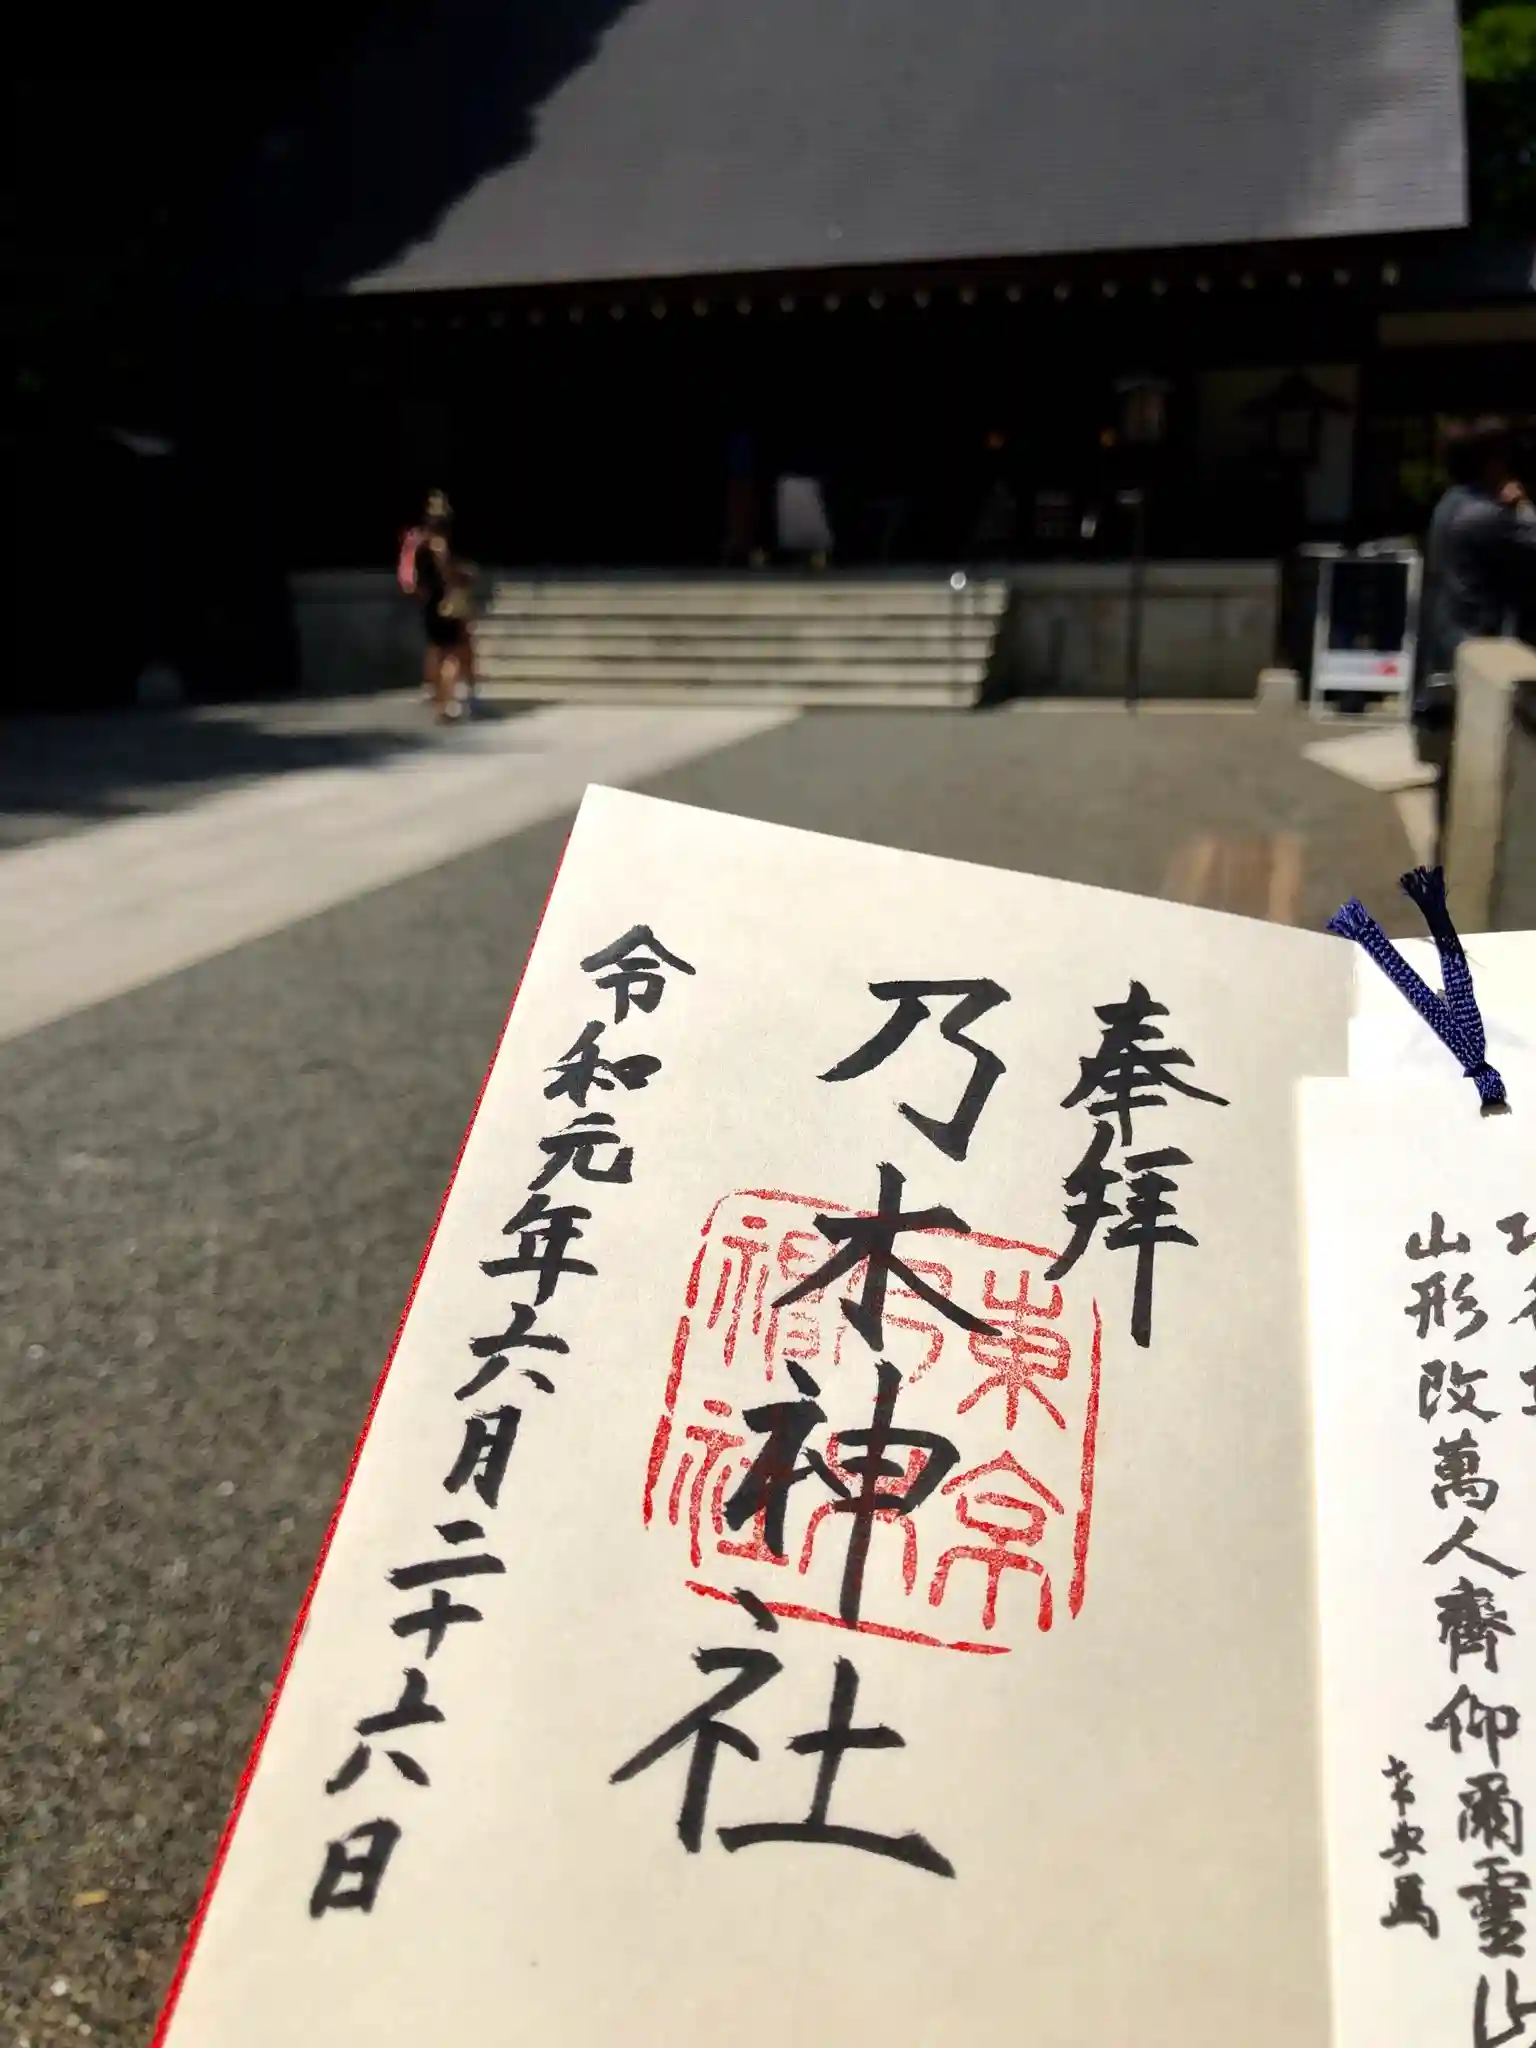 山形改萬人齊仰爾靈山
奉拜
乃木神社
東京
乃木
神社
令和元年六月二十六日